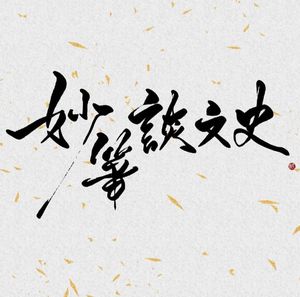 妙筆談文史